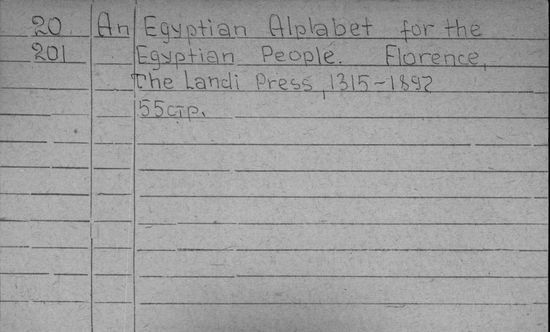 20. An Egyptian Alplabet for the
201 Egyptian People. Florence,
The Landi Press, 1315-1897
55стр.